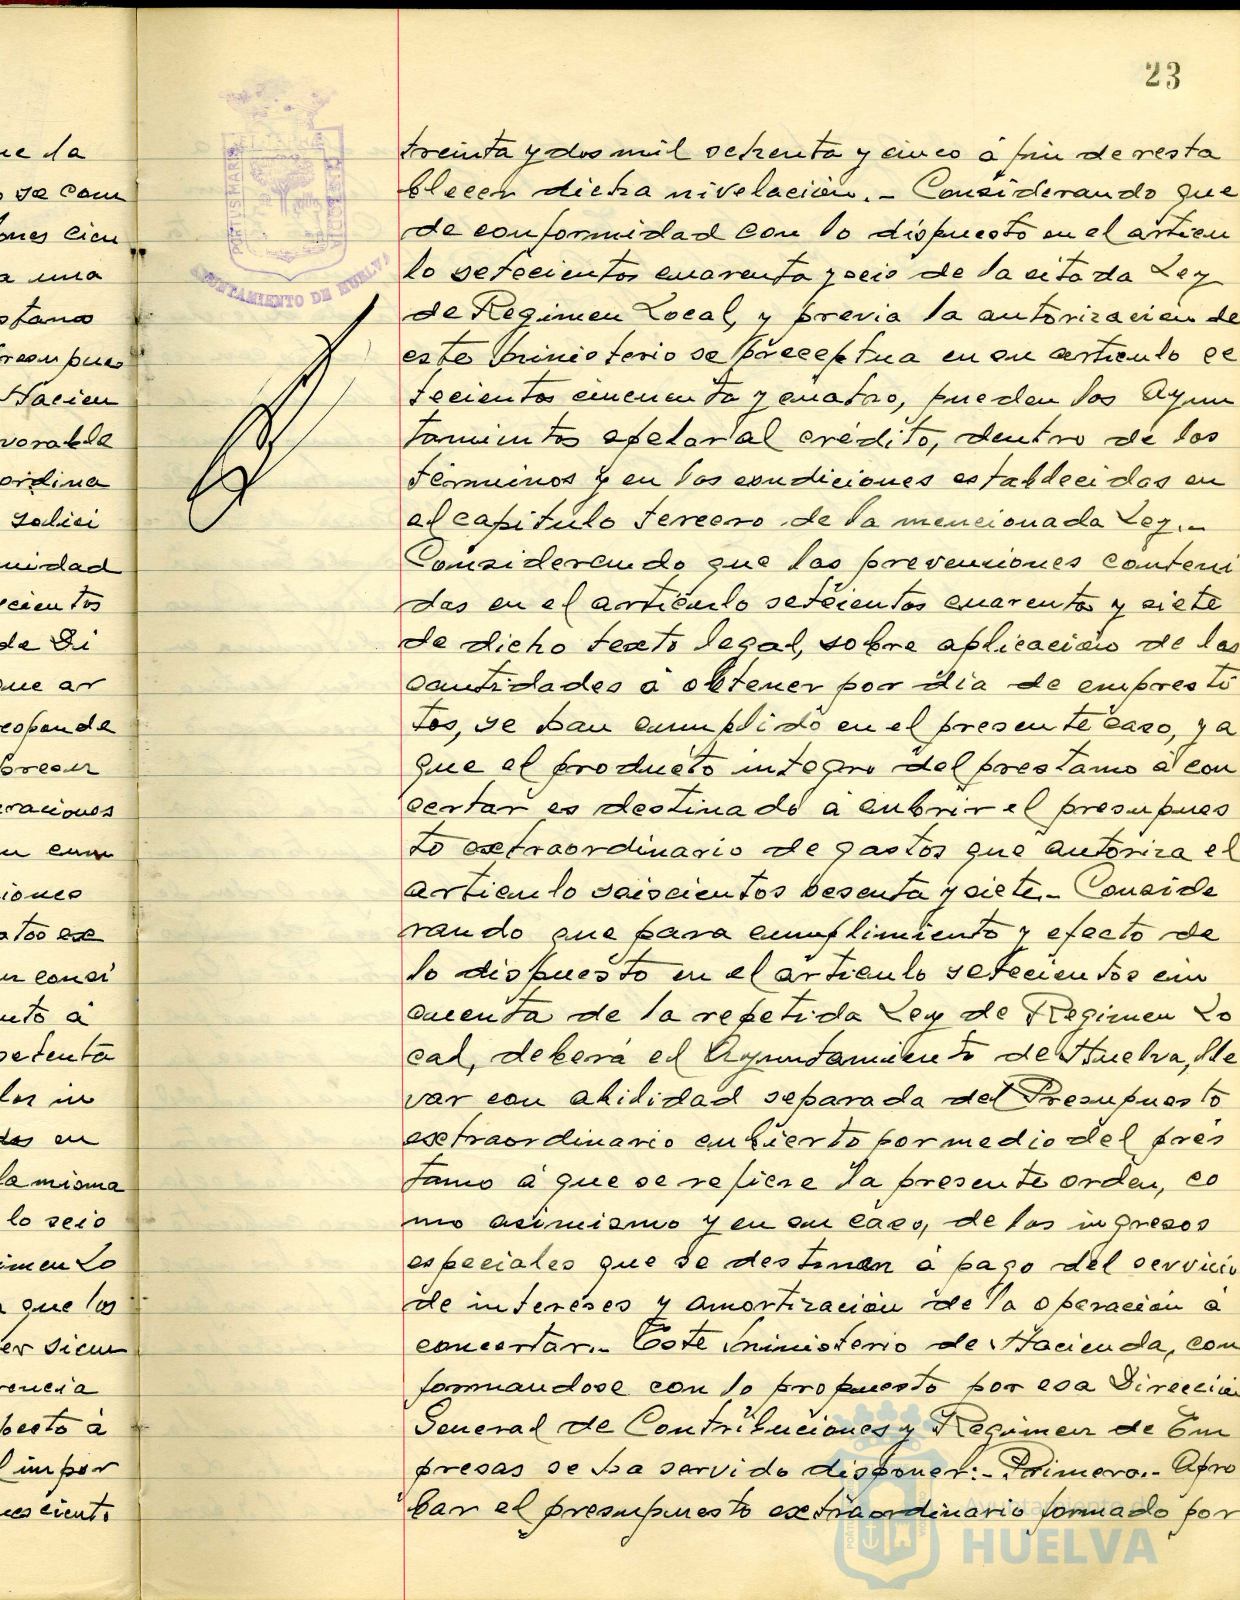 23
ue la
se com
ones cien
a una
stamo
resupues
Hacien
vorable
ordina
solici
unidad
cientos
de Di
que ar
responde
presu
eraciones
en cum
iones
atos ex
en consi
nto á
setenta
los in
dos en
la misma
lo seis
imen Lo
a que los
er sicu
rencia
pecto á
l impor
uesciento
PORTUS MARIS
AYUNTAMIENTO DE HUELVA
treinta y dos mil setenta y cinco á fin de resta
blecer dicha nivelación.- Considerando que
de conformidad con lo dispuesto en el articu
lo setecientos cuarenta y seis de la citada Ley
de Regimen Local, y previa la autorizacion de
este Ministerio se preceptua en su articulo se
tecientos cincuenta y cuatro, pueden los Ayun
tamientos apelar al crédito, dentro de los
términos y en las condiciones establecidas en
el capitulo tercero de la mencionada Ley.-
Considerando que las prevenciones conteni
das en el artículo setecientos cuarenta y siete
de dicho texto legal, sobre aplicación de las
cantidades á obtener por via de emprésti
tos, se han cumplido en el presente caso, ya
que el producto integro del prestamo á con
certar es destinado á cubrir el presupues
to extraordinario de gastos que autoriza el
articulo seiscientos sesenta y siete.- Conside
rando que para cumplimiento y efecto de
lo dispuesto en el articulo setecientos cin
cuenta de la repetida Ley de Regimen Lo
cal, deberá el Ayuntamiento de Huelva, lle
var contabilidad separada del Presupuesto
extraordinario cubierto por medio del prés
tamo á que se refiere la presente orden, co
mo asimismo y en su caso, de los ingresos
especiales que se destinen á pago del servicio
de intereses y amortización de la operación á
concertar.- Este Ministerio de Hacienda, con
formandose con lo propuesto por esa Direccion
General de Contribuciones y Regimen de Em
presas se ha servido disponer:- Primero.- Apro
bar el presupuesto extraordinario formado por
Ayuntamiento de
HUELVA